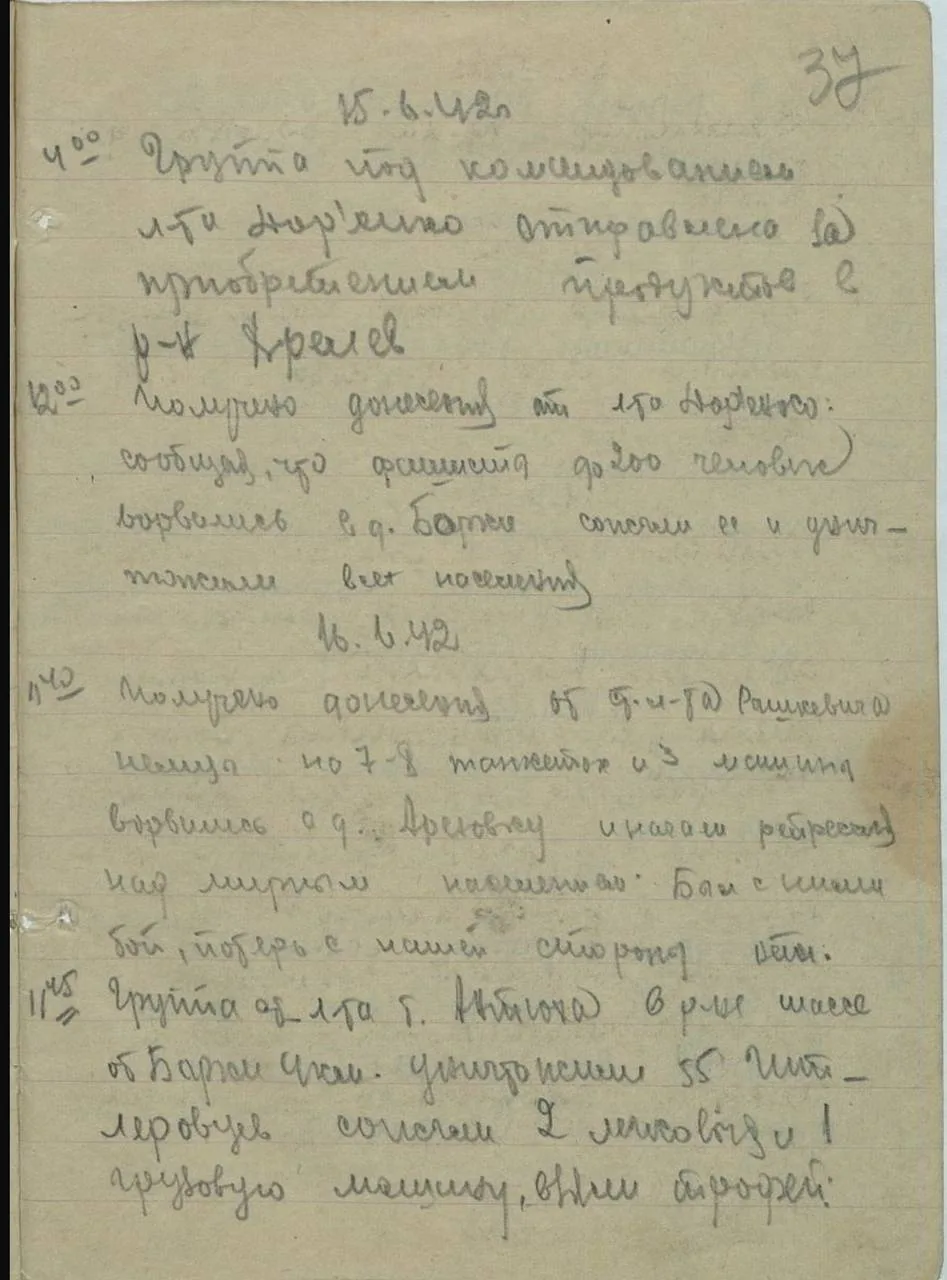 37
15.6.42г
4⁰⁰ Группа под командованием
л-та отправлена за
приобретением продуктов в
р-н
12⁰⁰ Получено донесения от л-та
сообщая, что фашисты до 200 человек
ворвались в д. Борки сожгли ее и унич-
тожили всех населения
16.6.42
11⁴⁰ Получено донесения от ст. л-та Рашкевича
немцы на 7-8 танкеток и 3 машины
ворвились в д. и начали репрессия
над мирным населением. Был с ними
бой, потерь с нашей стороны нет.
11⁴⁵ Группа от л-та т. в р-не шассе
от Борки 4 км. уничтожили 55 гит-
леровцев сожгли 2 легковыя и 1
грузовую машину, взяли трофей: